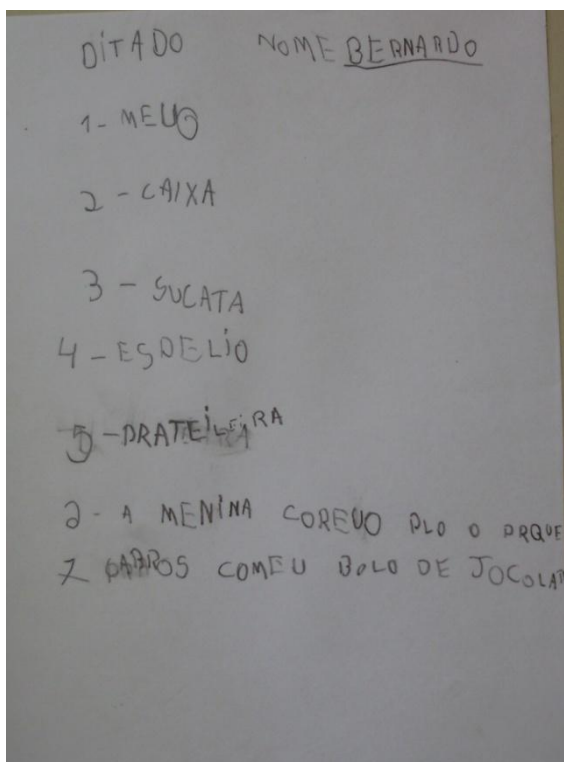 DITADO NOME BERNARDO
1- MEUO
2 - CAIXA
3 - SUCATA
4 - ESDELIO
5 - DRATEILEIRA
A MENINA COREUO DLO O DRQUE
7 COMEU BOLO DE JOCOLAT